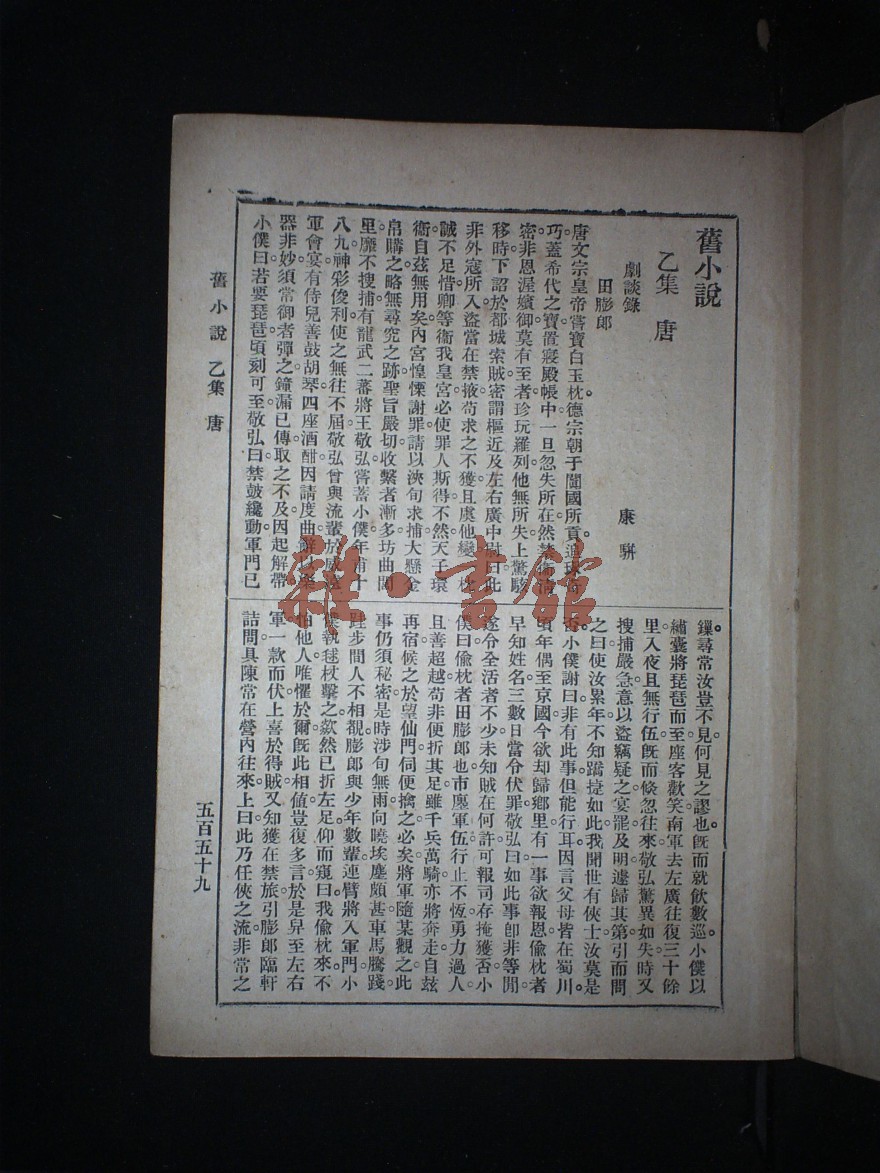 舊小說
乙集　唐
劇談錄
康駢
田膨郎
唐文宗皇帝嘗寶白玉枕。德宗朝于闐國所貢。追琢奇
巧。蓋希代之寶。置寢殿帳中。一旦忽失所在。然禁衛清
密。非恩渥嬪御莫有至者。珍玩羅列。他無所失。上驚駭
移時。下詔於都城索賊。密謂樞近及左右廣中尉曰。此
非外寇所入。盜當在禁掖。苟求之不獲。且虞他變。一枕
誠不足惜。卿等衞我皇宮。必使罪人斯得。不然天子環
衞。自茲無用矣。內宮惶慄謝罪。請以浹旬求捕。大懸金
帛購之。略無尋究之跡。聖旨嚴切。收繫者漸多。坊曲閭
里靡不搜捕。有龍武二蕃將王敬弘嘗蓄小僕。年甫十
八九。神彩俊利。使之無往不屆。敬弘曾與流輩於威遠
軍會宴。有侍兒善鼓胡琴。四座酒酣。因請度曲。辭以樂
器非妙。須常御者彈之。鐘漏已傳。取之不及。因起解帶。
小僕曰。若要琵琶。頃刻可至。敬弘曰。禁鼓纔動。軍門已
鏁。尋常汝豈不見。何見之謬也。既而就飲數巡。小僕以
繡囊將琵琶而至。座客歡笑。南軍去左廣。往復三十餘
里。入夜且無行伍。既而倏忽往來。敬弘驚異如失。時又
搜捕嚴急。意以盜竊疑之。宴罷及明。遽歸其第。引而問
之曰。使汝累年。不知蹻捷如此。我聞世有俠士。汝莫是
否。小僕謝曰。非有此事。但能行耳。因言父母皆在蜀川。
頃年偶至京國。今欲却歸鄉里。有一事欲報恩。偷枕者
早知姓名。三數日當令伏罪。敬弘曰。如此事卽非等閒。
遂令全活者不少。未知賊在何許。可報司存掩獲否。小
僕曰。偷枕者田膨郎也。市廛軍伍。行止不恆。勇力過人。
且善超越。苟非便折其足。雖千兵萬騎。亦將奔走。自茲
再宿。候之於望仙門。伺便擒之必矣。將軍隨某觀之。此
事仍須秘密。是時涉旬無雨。向曉埃塵頗甚。車馬騰踐。
跬步間人不相覩。膨郎與少年數輩。連臂將入軍門。小
僕執毬杖擊之。欻然已折左足。仰而窺曰。我偷枕來。不
怕他人。唯懼於爾。既此相值。豈復多言。於是舁至左右
軍。一款而伏。上喜於得賊。又知獲在禁旅。引膨郎臨軒
詰問。具陳常在營內往來。上曰。此乃任俠之流。非常之
舊小說　乙集　唐
五百五十九
雜·書館